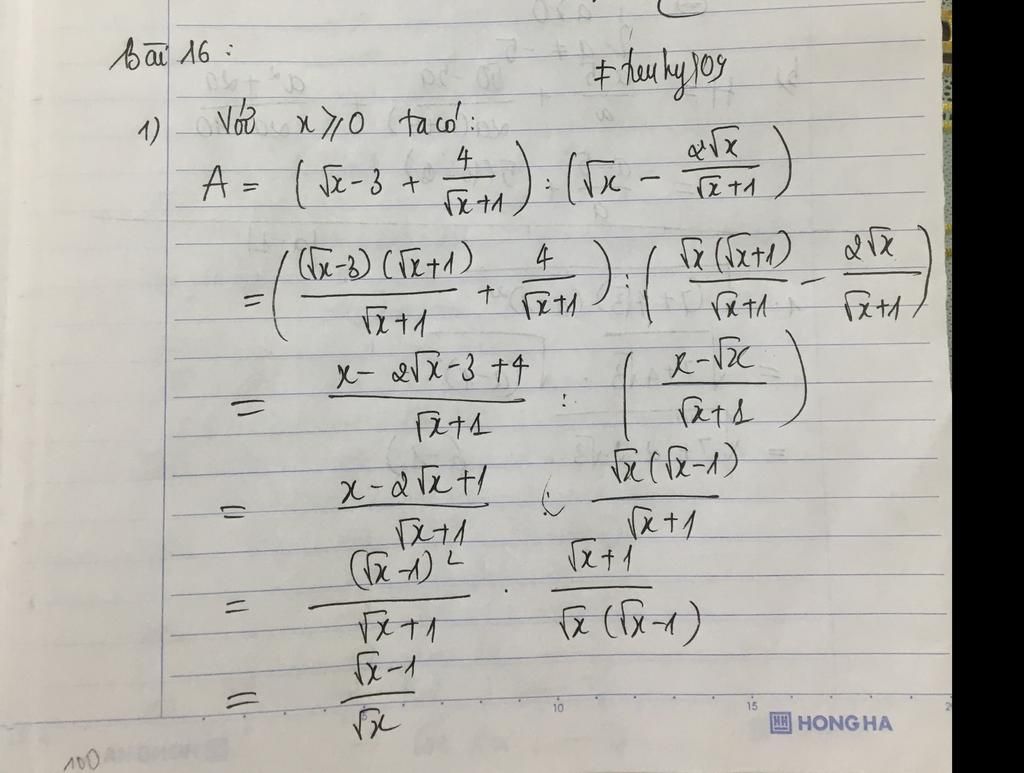 Bài 16 :
≠ thuhy109
1) Với x ⩾ 0 ta có:
A = ( √x - 3 + 4/(√x+1) ) : ( √x - 2√x/(√x+1) )
= ( (√x-3)(√x+1)/(√x+1) + 4/(√x+1) ) : ( √x(√x+1)/(√x+1) - 2√x/(√x+1) )
= (x - 2√x - 3 + 4)/(√x+1) : ( (x-√x)/(√x+1) )
= (x - 2√x + 1)/(√x+1) : √x(√x-1)/(√x+1)
= (√x-1)²/(√x+1) . (√x+1)/(√x(√x-1))
= (√x-1)/√x
10 15
HONG HA
100